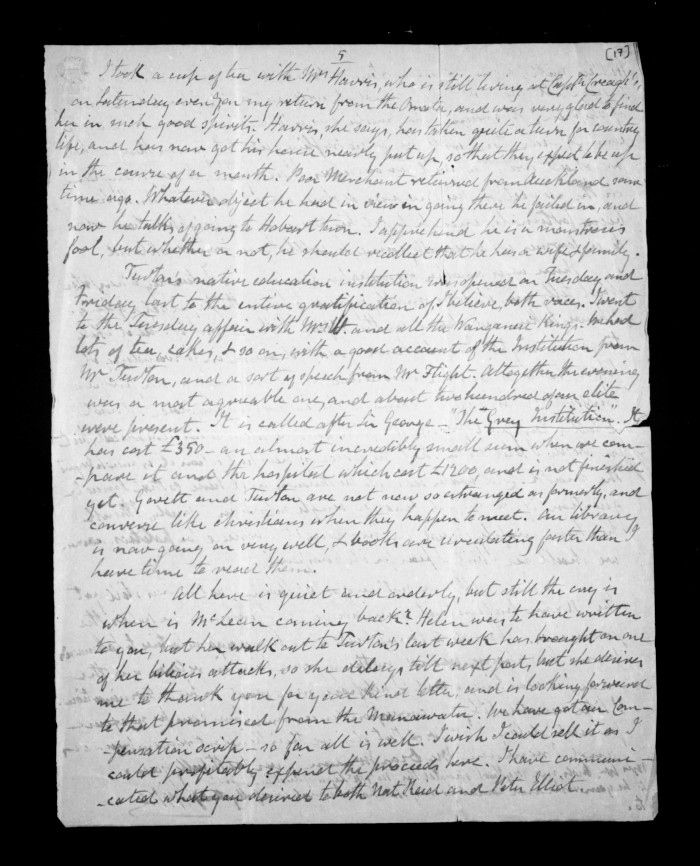 5
[17]
I took a cup of tea with Mrs Harris, who is still living at Capt. Creagh's,
on Saturday even'g on my return from the Omata, and was very glad to find
her in such good spirits. Harris, she says, has taken quite a turn for country
life, and has now got his house nearly put up, so that they expect to be up
in the course of a month. Poor Merchant returned from Auckland some
time ago. Whatever object he had in view in going there he failed in, and
now he talks of going to Hobart town. I apprehend he is a monstrous
fool, but whether or not, he should recollect that he has a wife & family.
Turton's native education institution was opened on Tuesday and
Friday last to the entire gratification of, I believe, both races. I went
to the Tuesday affair with Mrs H and all the Wanganui Kings. We had
lots of tea, cakes, & so on, with a good account of the Institution from
Mr Turton, and a sort of speech from Mr Flight. Altogether the evening
was a most agreeable one, and about two hundred of our elite
were present. It is called after Sir George - "The Grey Institution". It
has cost £350 - an almost incredibly small sum when we com-
-pare it and the hospital which cost £1200, and is not finished
yet. Govett and Turton are not now so estranged as formerly, and
converse like christians when they happen to meet. Our library
is now going on very well, & books are circulating faster than I
have time to read them.
All here is quiet and orderly, but still the cry is
when is McLean coming back? Helen was to have written
to you, but her walk out to Turton's last week has brought on one
of her bilious attacks, so she delays till next post, but she desires
me to thank you for your kind letter, and is looking forward
to that promised from the Manawatu. We have got our Com-
-pensation scrip - so far all is well. I wish I could sell it as I
could profitably expend the proceeds here. I have communi-
-cated what you desired to both Nat. Reid and Peter Elliot.